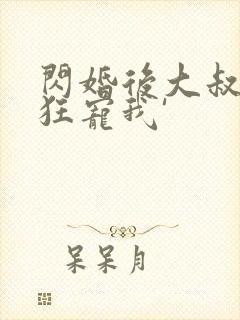 閃婚後大叔
狂寵我'
呆呆月